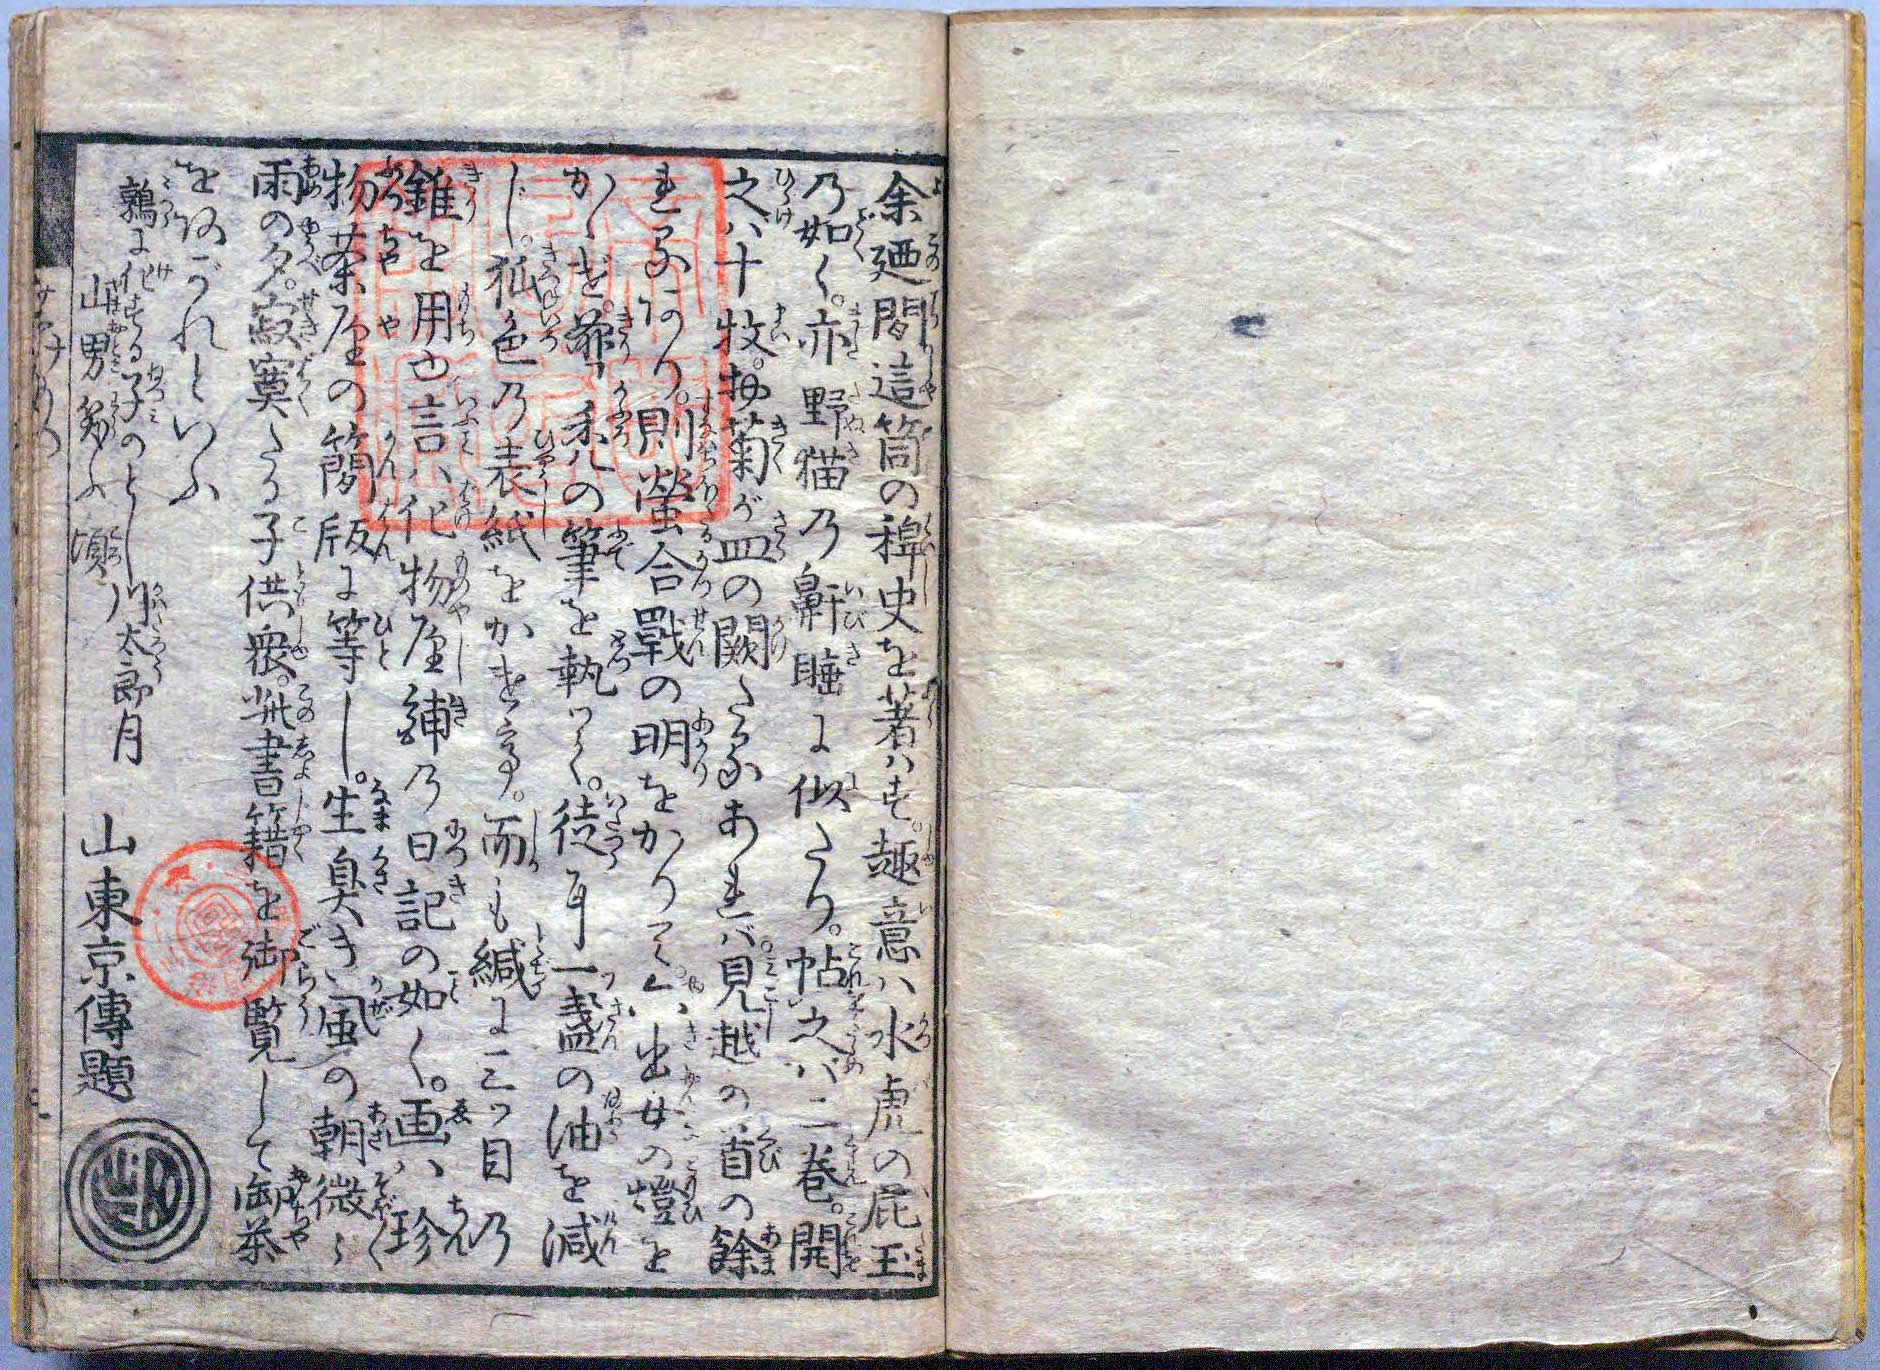 余廼間這箇の稗史を著はす。趣意ハ水虎の屁玉
乃如く。亦野猫乃鼾睡に似たり。帖之バ二巻。開
之ハ十枚。於菊が皿の闕たるあれバ。見越の首の餘
れるあり。則螢合戰の明をかりて。出女の燈を
かゝげ。の筆を執つて。徒耳一盞の油を減
じ。狐色乃表紙をかけて。而も緘に三ツ目乃
錐を用也。言ハ化物屋鋪乃日記の如く。画ハ珍
物茶屋の簡版に等し。生臭き風の朝。微々
雨の夕。寂寞たる子供衆。此書籍を御覧して御茶
をあがれといふ
鶉に化する子のとし 川太郎月
山男笑ふ頃
山東京傳題